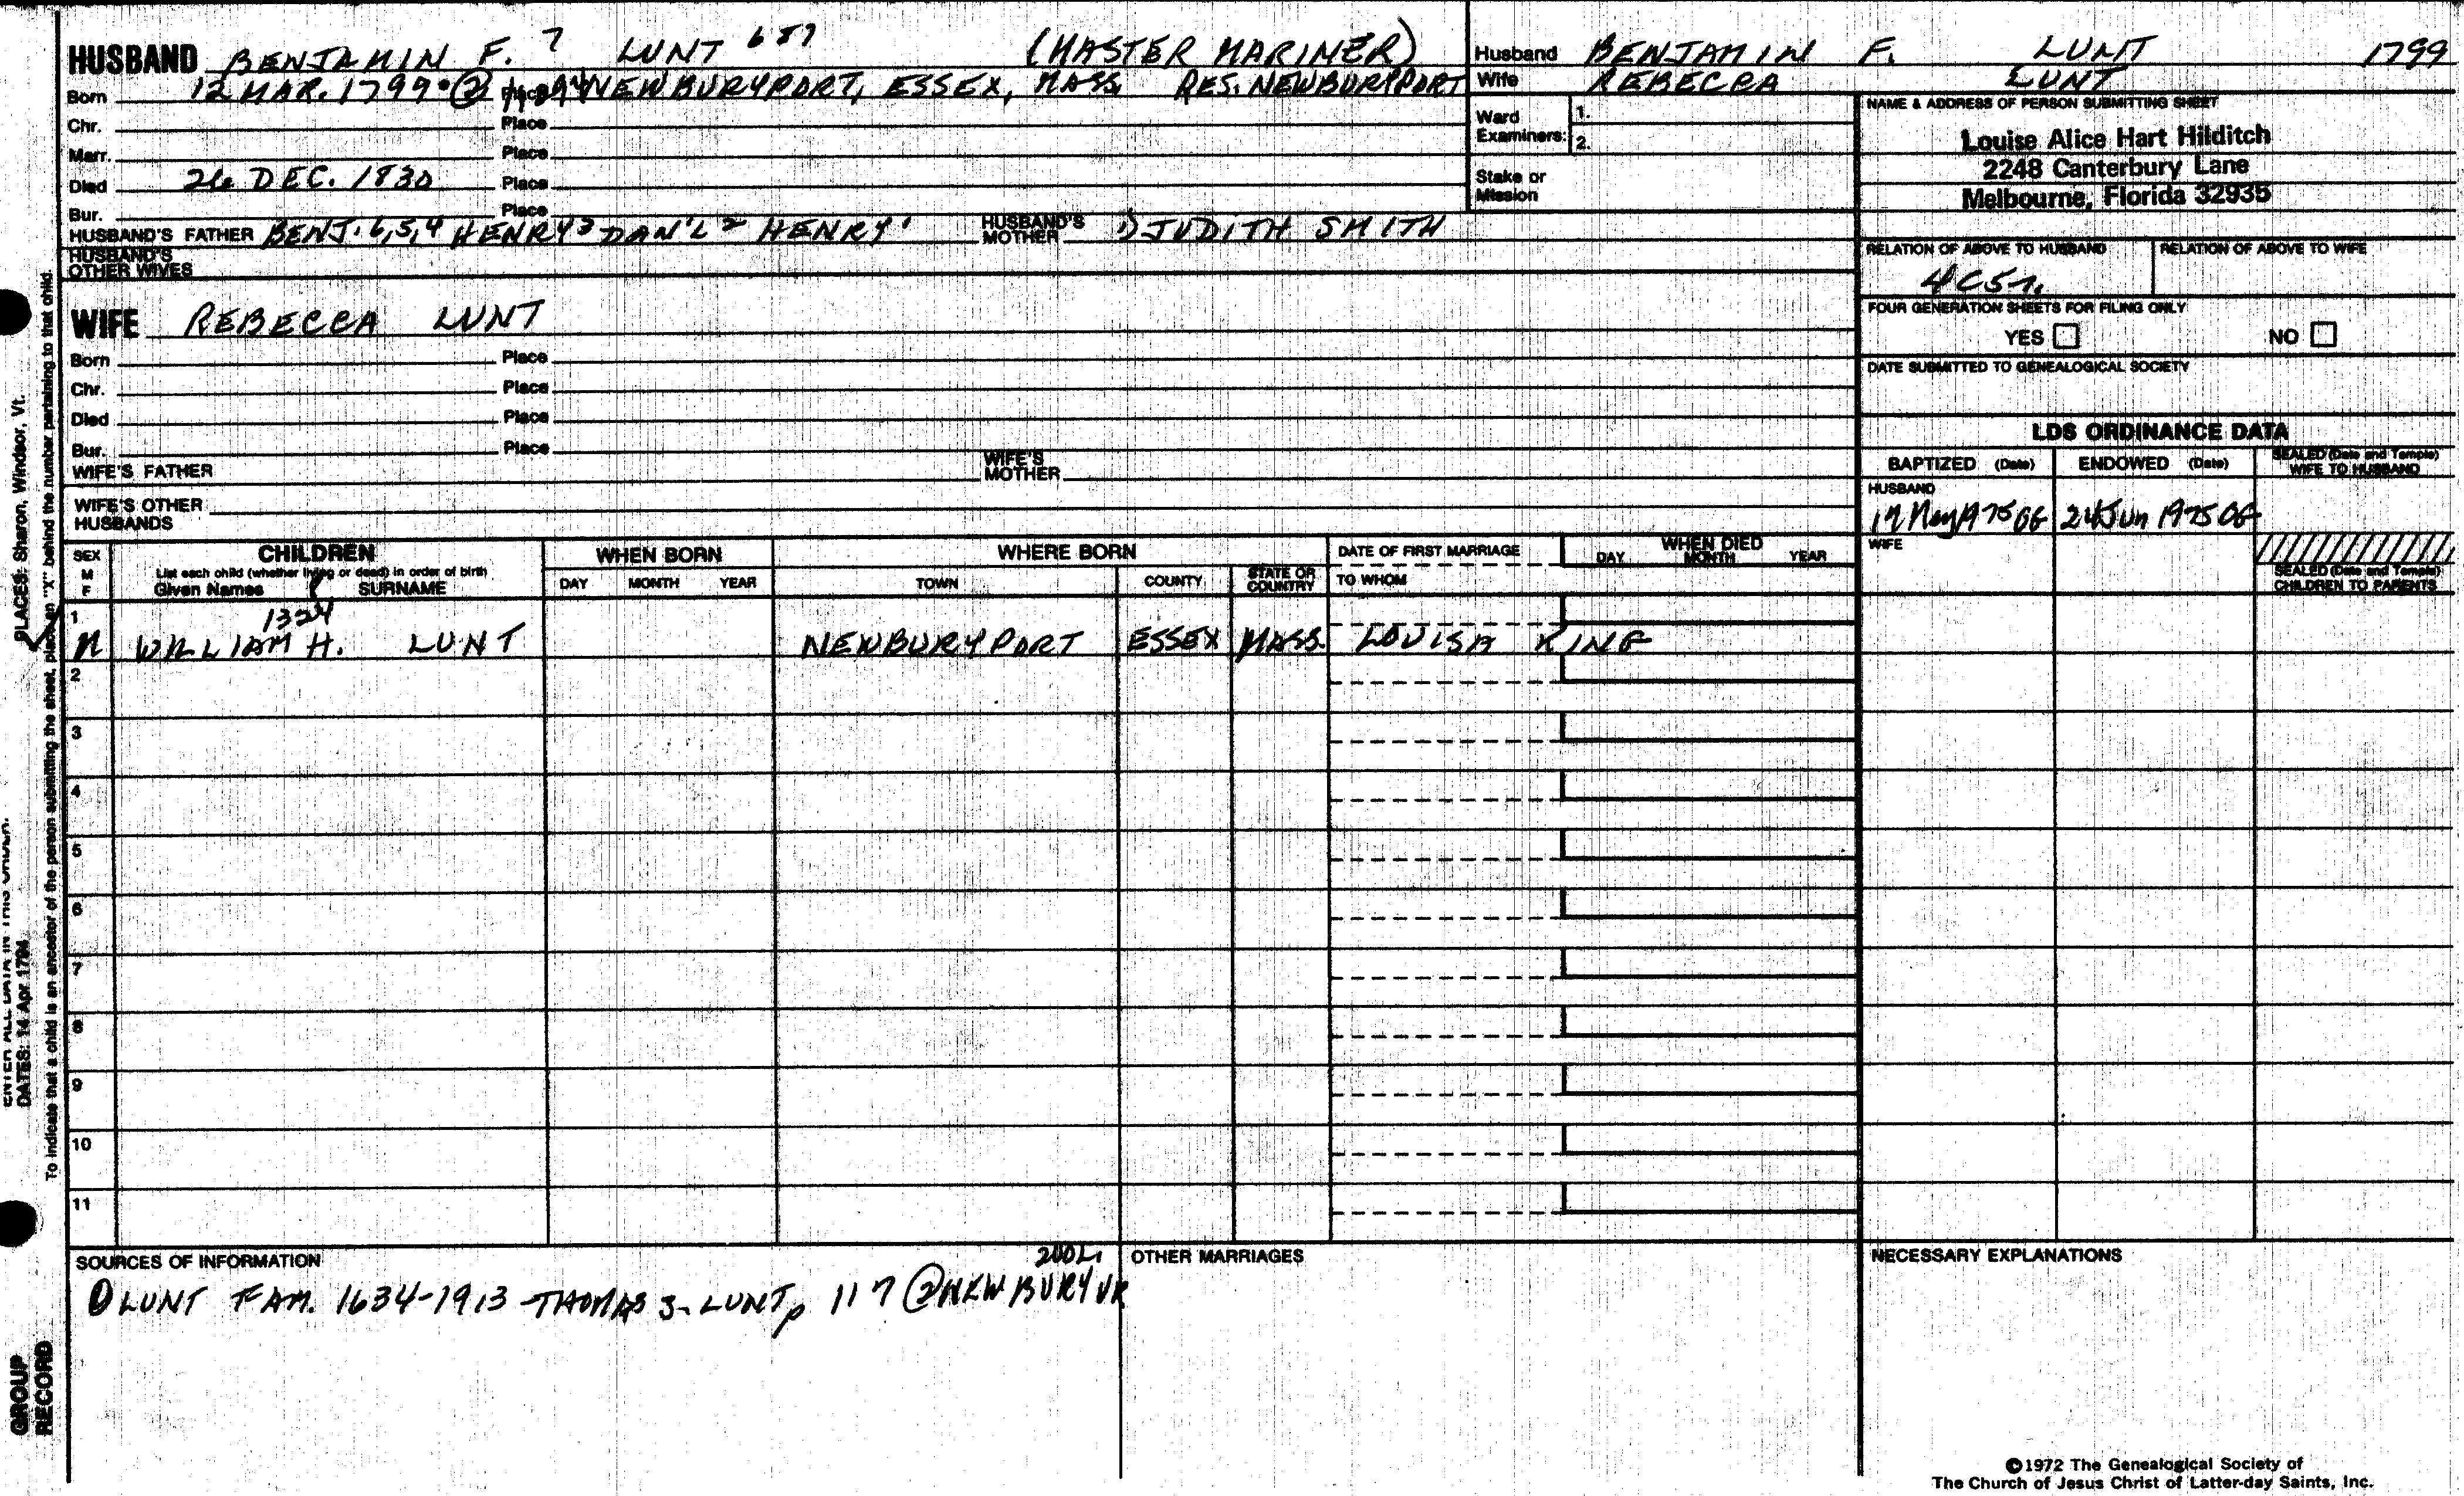 HUSBAND BENJAMIN F. 7 LUNT 687 (MASTER MARINER)
Born 12 MAR. 1799 @ Place NEWBURYPORT, ESSEX, MASS. RES. NEWBURYPORT
Chr. Place
Marr. Place
Died 26 DEC. 1830 Place
Bur. Place
HUSBAND'S FATHER BENJ. 6,5,4 HENRY 3 DAN'L 2 HENRY 1 HUSBAND'S MOTHER JUDITH SMITH
HUSBAND'S OTHER WIVES
WIFE REBECCA LUNT
Born Place
Chr. Place
Died Place
Bur. Place
WIFE'S FATHER WIFE'S MOTHER
WIFE'S OTHER HUSBANDS
Husband BENJAMIN F. LUNT 1799
Wife REBECCA LUNT
Ward Examiners: 1.
2.
Stake or Mission
NAME & ADDRESS OF PERSON SUBMITTING SHEET
Louise Alice Hart Hilditch
2248 Canterbury Lane
Melbourne, Florida 32935
RELATION OF ABOVE TO HUSBAND RELATION OF ABOVE TO WIFE
FOUR GENERATION SHEETS FOR FILING ONLY
YES NO
DATE SUBMITTED TO GENEALOGICAL SOCIETY
LDS ORDINANCE DATA
BAPTIZED (Date) ENDOWED (Date) SEALED (Date and Temple) WIFE TO HUSBAND
HUSBAND
May 1975 OG 24 Jun 1975 OG
WIFE
SEALED (Date and Temple)
CHILDREN TO PARENTS
SEX M F
CHILDREN
List each child (whether living or dead) in order of birth
Given Names SURNAME
WHEN BORN
DAY MONTH YEAR
WHERE BORN
TOWN COUNTY STATE OR COUNTRY
DATE OF FIRST MARRIAGE
TO WHOM
WHEN DIED
DAY MONTH YEAR
1 1324
M WILLIAM H. LUNT NEWBURYPORT ESSEX MASS. LOUISA KING
2
3
4
5
6
7
8
9
10
11
SOURCES OF INFORMATION
① LUNT FAM. 1634-1913 THOMAS S. LUNT, p 117 ② NEWBURY VR
OTHER MARRIAGES
NECESSARY EXPLANATIONS
©1972 The Genealogical Society of
The Church of Jesus Christ of Latter-day Saints, Inc.
PLACES: Sharon, Windsor, Vt.
ENTER ALL DATA IN THIS ORDER:
DATES: 14 Apr 1794
To indicate that a child is an ancestor of the person submitting the sheet, place an "X" behind the number pertaining to that child.
GROUP
RECORD